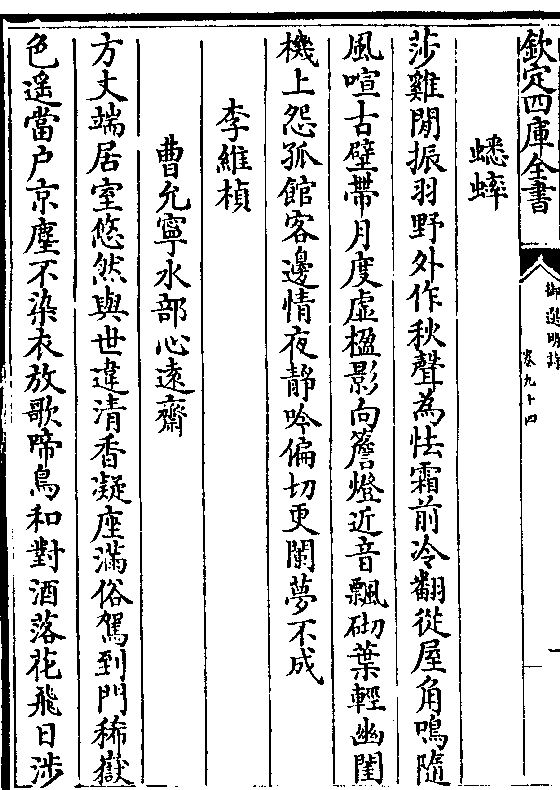 欽定四庫全書
御選明詩
卷九十四
蟋蟀
莎雞閒振羽野外作秋聲為怯霜前冷翻從屋角鳴隨
風喧古壁帶月度虛楹影向簷燈近音飄砌葉輕幽閨
機上怨孤館客邊情夜靜吟偏切更闌夢不成
李維楨
曹允寧水部心遠齋
方丈端居室悠然與世違清香凝座滿俗駕到門稀嶽
色遥當户京塵不染衣放歌啼鳥和對酒落花飛日涉